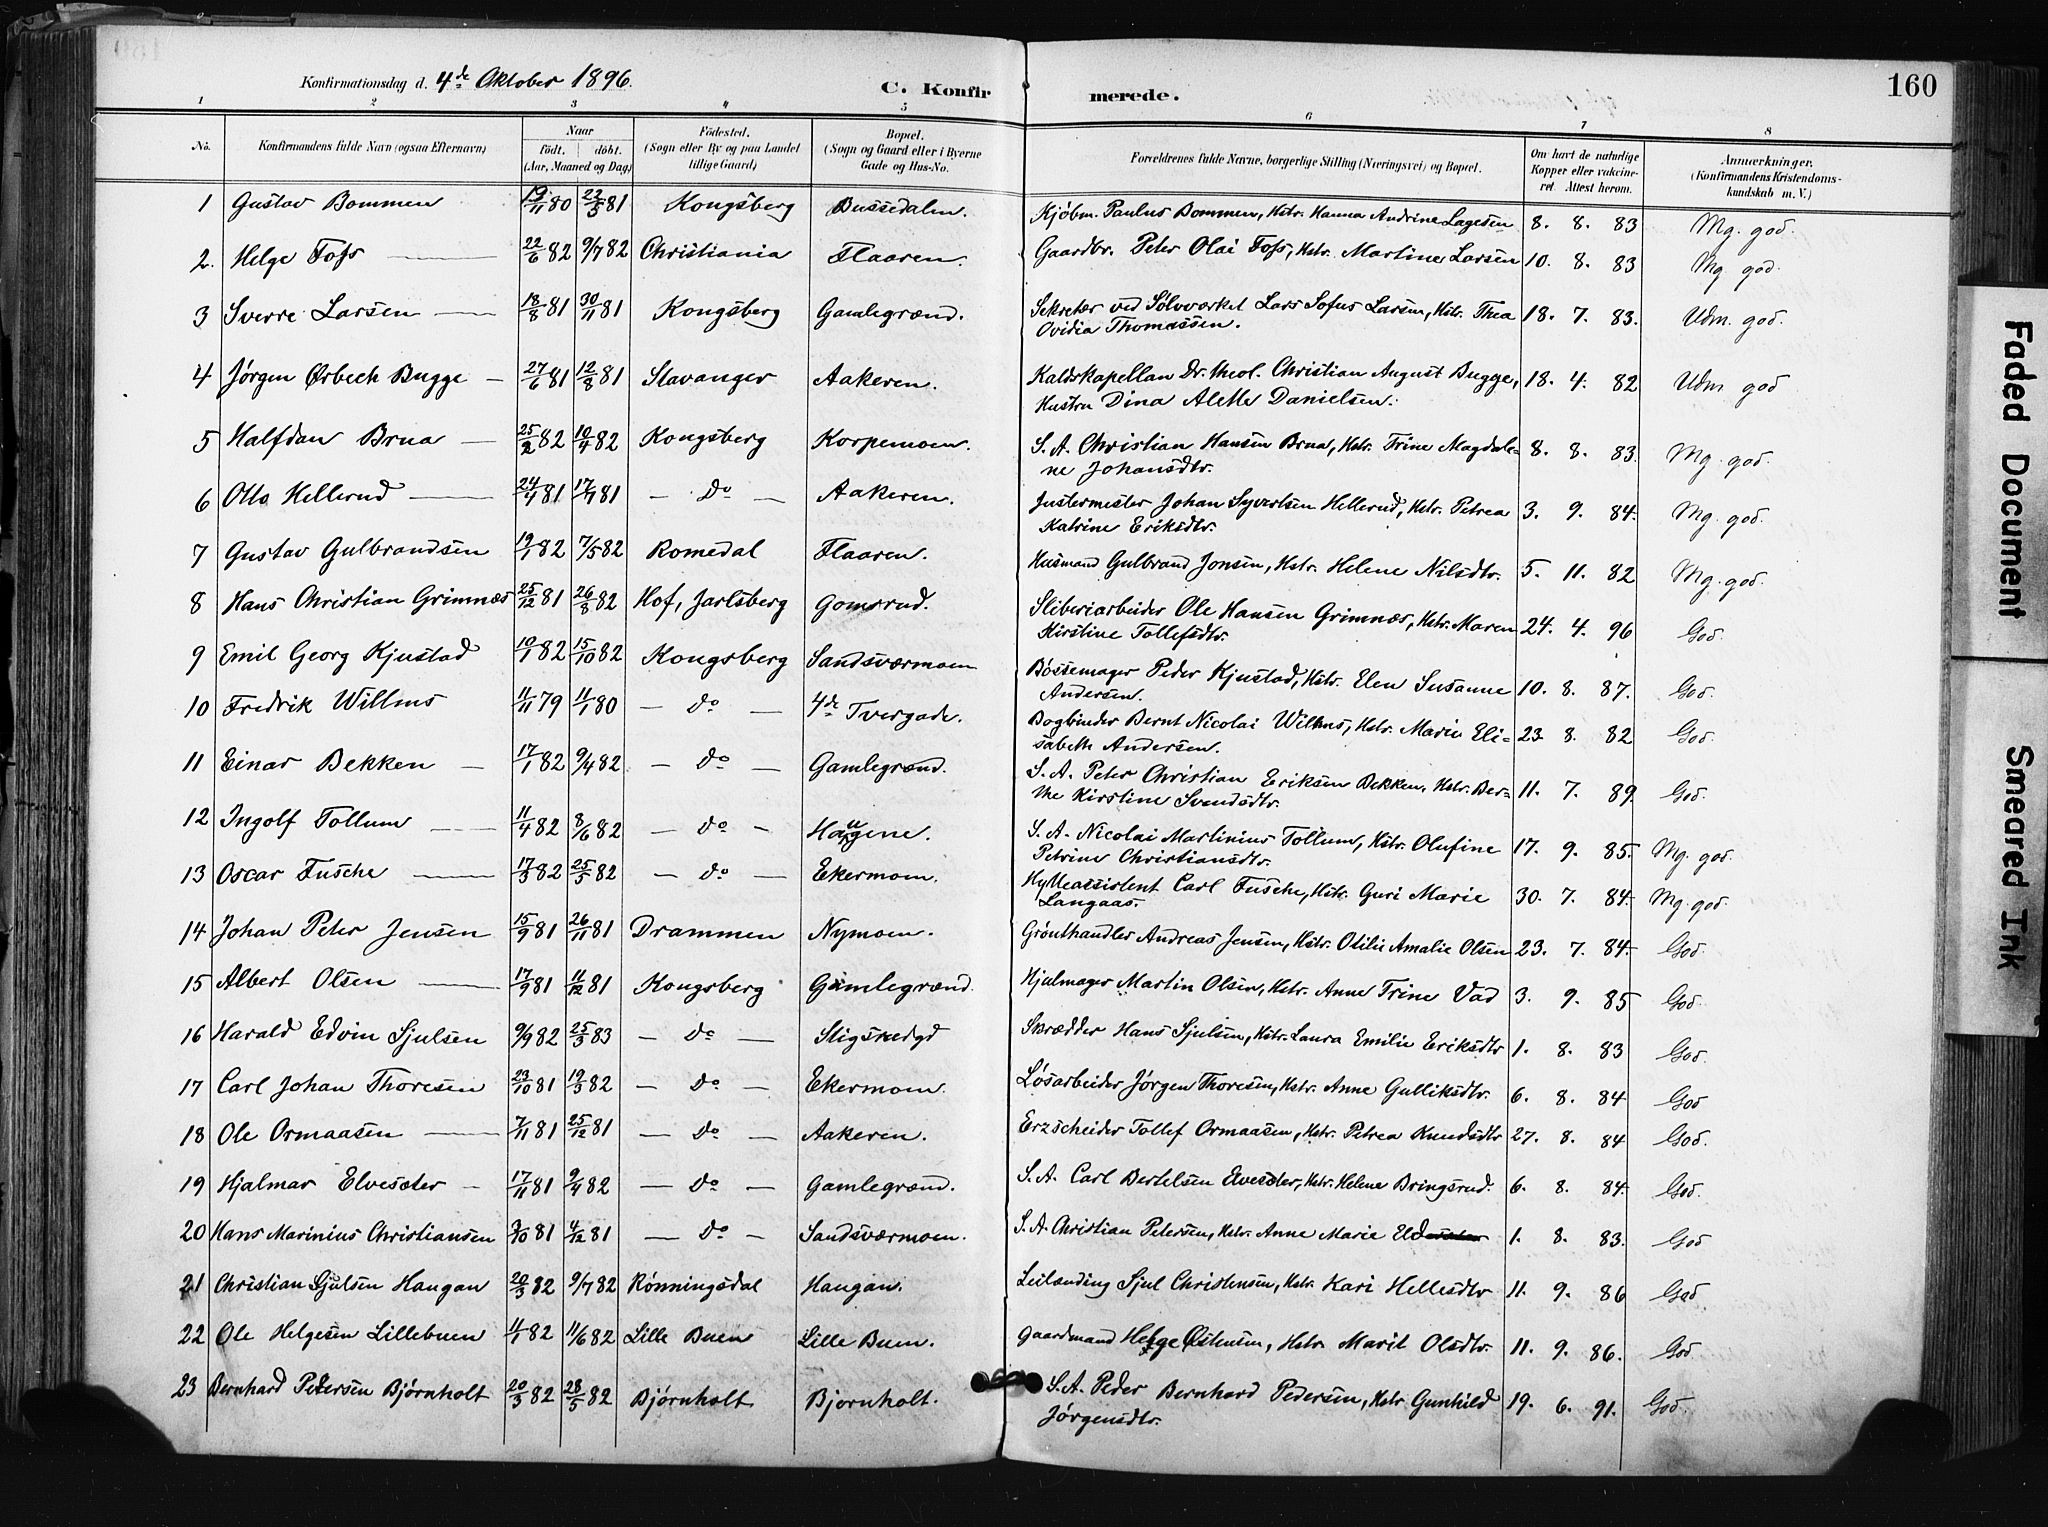 160
Konfirmationsdag d. 4de Oktober 1896.
C. Konfirmerede.
1 2 3 4 5 6 7 8
No. Konfirmandens fulde Navn (ogsaa Efternavn) Naar født. døbt. (Aar, Maaned og Dag) Fødested. (Sogn eller By og paa Landet tillige Gaard) Bopæl. (Sogn og Gaard eller i Byerne Gade og Hus-No. Forældrenes fulde Navne, borgerlige Stilling (Næringsvei) og Bopæl. Om havt de naturlige Kopper eller vaccineret. Attest herom. Anmærkninger. (Konfirmandens Kristendomskundskab m. V.)
1 Gustav Bommen 19/11 80 22/3 81 Kongsberg Bussedalen. Kjøbm. Paulus Bommen, Hstr. Hanna Andrine Lagesen 8. 8. 83 Mg. god.
2. Helge Foss 22/6 82 9/7 82 Christiania Flaaren. Gaardbr. Peter Olai Foss, Hstr. Martine Larsen 10. 8. 83 Mg god.
3 Sverre Larsen 18/8 81 30/11 81 Kongsberg Gamlegrænd. Sekretær ved Sølvværket Lars Sofus Larsen, Hstr. Thea Ovidia Thomassen. 18. 7. 83. Udm. god.
4 Jørgen Ørbech Bugge 27/6 81 12/8 81 Stavanger Aakeren. Kaldskapellan Dr. theol. Christian August Bugge, Hustru Dina Alette Danielsen. 18. 4. 82 Udm. god
5 Halfdan Brua 25/2 82 10/4 82 Kongsberg Korpemoen. S. A. Christian Hansen Brua, Hstr. Trine Magdalene Johansdtr. 8. 8. 83. Mg. god.
6 Otto Hellerud 24/4 81 17/7 81 Do Aakeren. Justermester Johan Syvertsen Hellerud, Hstr. Petrea Katrine Eriksdtr. 3. 9. 84. Mg. god.
7 Gustav Gulbrandsen 19/1 82 7/5 82 Romedal Flaaren. Husmand Gulbrand Jonsen, Hstr. Helene Nilsdtr. 5. 11. 82 Mg. god.
8 Hans Christian Grimnæs 25/12 81 26/8 82 Hof, Jarlsberg Gomsrud. Sliberiarbeider Ole Hansen Grimnæs, Hstr. Maren Kirstine Tollefsdtr. 24. 4. 96 God.
9 Emil Georg Kjustad 10/1 82 15/10 82 Kongsberg Sandsværmoen Bøssemager Peder Kjustad, Hstr. Elen Susanne Andersen. 10. 8. 87. God.
10 Fredrik Willms 11/11 79 11/1 80 Do 4de Tvergade. Bogbinder Bernt Nicolai Willms, Hstr. Marie Elisabeth Andersen. 23. 8. 82 God.
11 Einar Bekken 17/1 82 9/4 82 Do Gamlegrænd. S. A. Peter Christian Eriksen Bekken, Hstr. Berthe Kirstine Svendsdtr. 11. 7. 89. God.
12 Ingolf Tollum 11/4 82 8/6 82 Do Haugene. S. A. Nicolai Martinius Tollum, Hstr. Olufine Petrine Christiansdtr. 17. 9. 85. Mg. god.
13 Oscar Fusche 17/3 82 25/5 82 Do Ekermoen. Hytteassistent Carl Fusche, Hstr. Guri Marie Langaas. 30. 7. 84. Mg. god.
14 Johan Peter Jensen 15/9 81 26/11 81 Drammen Nymoen. Grønthandler Andreas Jensen, Hstr. Otilie Amalie Olsen 23. 7. 84. God.
15 Albert Olsen 17/9 81 11/12 81 Kongsberg Gamlegrænd. Hjulmager Martin Olsen, Hstr. Anne Trine Vad 3. 9. 85 God.
16 Harald Edvin Sjulsen 9/9 82 25/3 83 Do Skrædder Hans Sjulsen, Hstr. Laura Emilie Eriksdtr 1. 8. 83 God.
17 Carl Johan Thoresen 23/10 81 19/3 82 Do Ekermoen. Løsarbeider Jørgen Thoresen, Hstr. Anne Gulliksdtr. 6. 8. 84 God
18 Ole Ormaasen 7/11 81 25/12 81 Do Aakeren. Erzscheider Tollef Ormaasen, Hstr. Petrea Knudsdtr 27. 8. 84 God.
19 Hjalmar Elvesæter 17/11 81 9/4 82 Do Gamlegrænd. S. A. Carl Bertelsen Elvesæter, Hstr. Helene Bringsrud. 6. 8. 84. God.
20 Hans Marinius Christiansen /10 81 4/12 81 Do Sandsværmoen. S. A. Christian Petersen, Hstr. Anne Marie 1. 8. 83. God
21 Christian Sjulsen Haugan 20/3 82 9/7 82 Rønningsdal Haugan. Leilænding Sjul Christensen, Hstr Kari Hellesdtr 11. 9. 86 God.
22 Ole Helgesen Lillebuen 11/1 82 11/6 82 Lille Buen Lille Buen. Gaardmand Helge Østensen, Hstr. Marit Olsdtr. 11. 9. 86. God
23 Bernhard Petersen Bjørnholt 20/3 82 28/5 82 Bjørnholt Bjørnholt. S. A. Peder Bernhard Pedersen, Hstr Gunhild Jørgensdtr. 19. 6. 91. God.
Faded Document
Smeared Ink